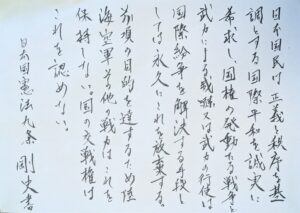 日本国民は正義と秩序を基
調とする国際平和を誠実に
希求し、国権の発動たる戦争と
武力による威嚇又は武力の行使は
国際紛争を解決する手段と
しては永久にこれを放棄する。
前項の目的を達するため陸
海空軍その他の戦力はこれを
保持しない。国の交戦権は
これを認めない。
日本国憲法九条 剛史書